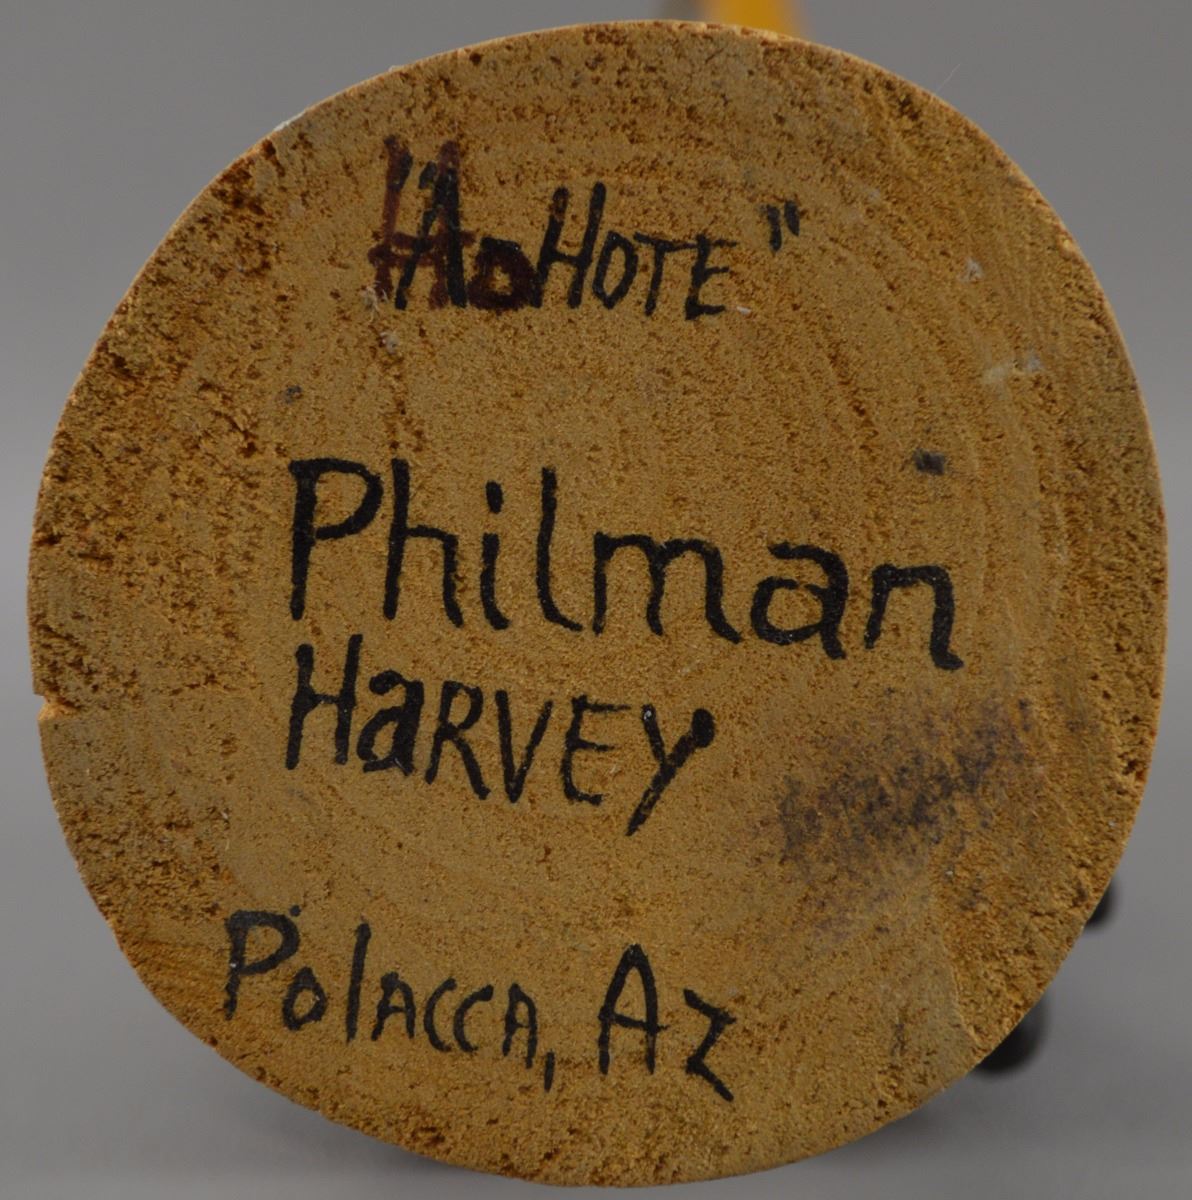 "AHOTE"
Philman
HaRVEY
PolACCA, Az